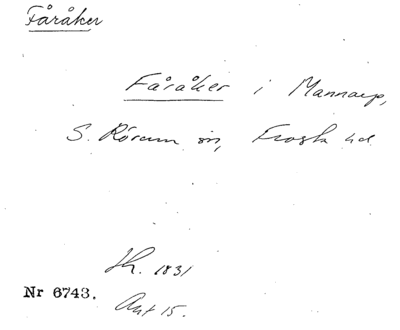 Fåråker
Fåråker i Mannarp,
S. Rörum sn, Frosta hd
Sk. 1831
Nr 6743.
Akt 15.